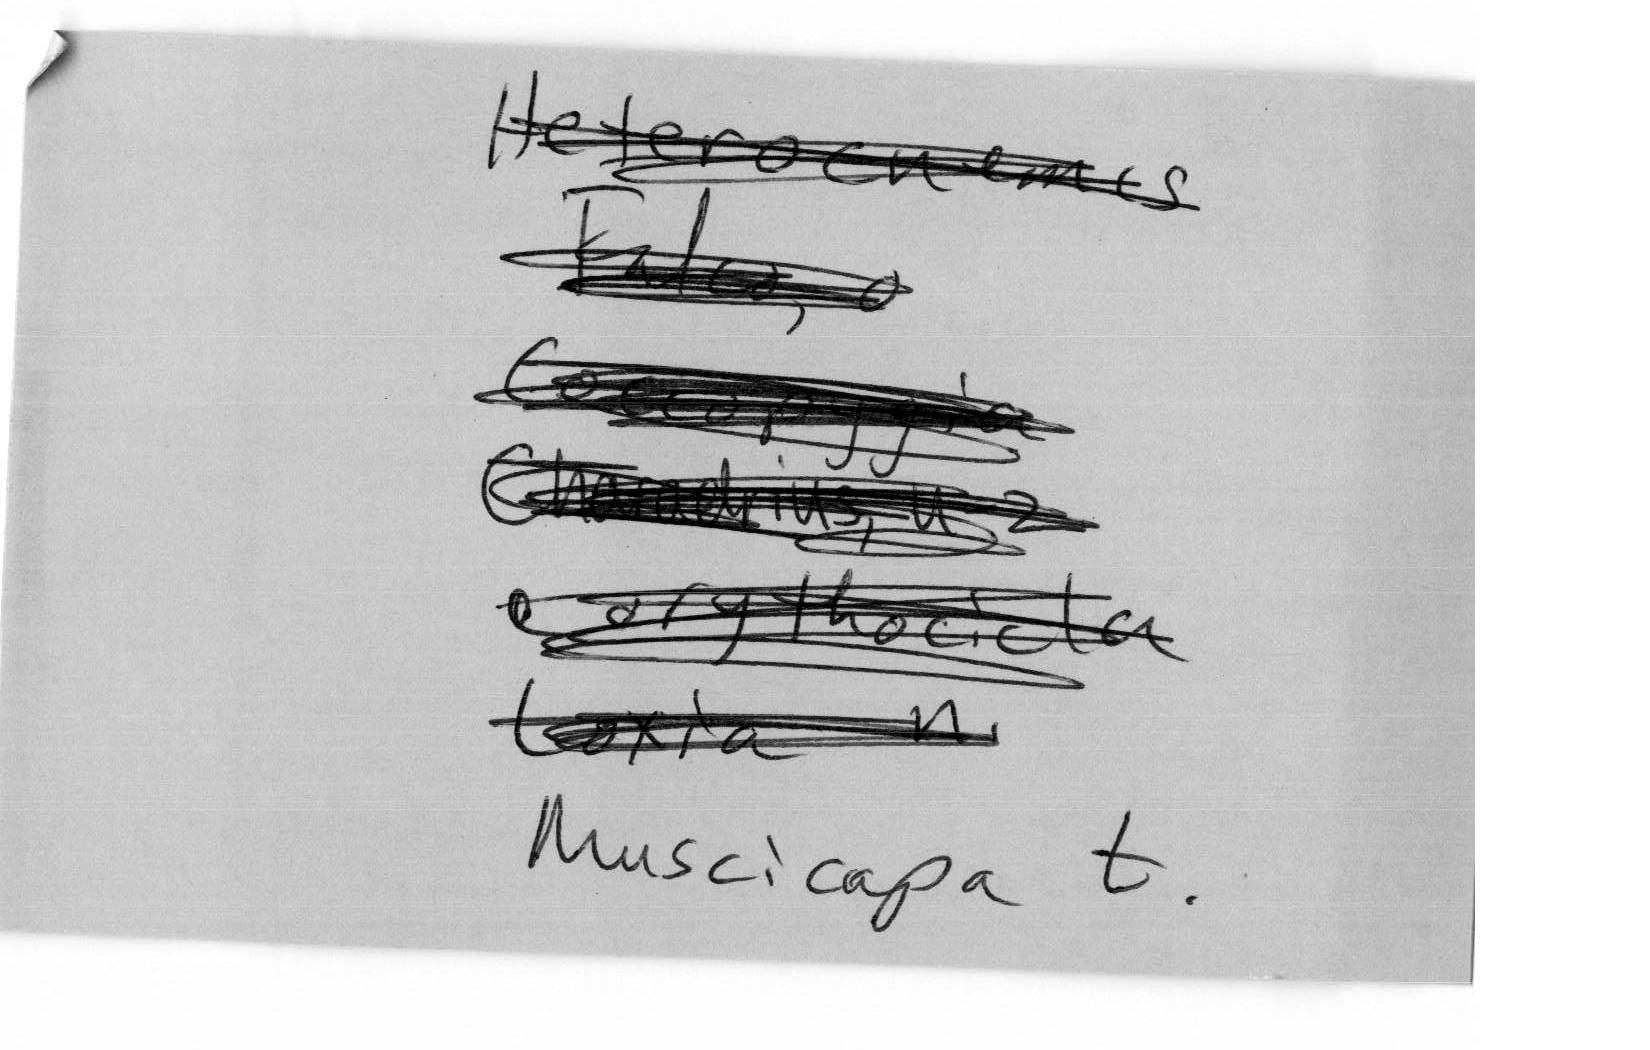 Heterocnemis
Falco, o
Coccopygia
Charadrius, u-z
corythocicla
Loxia n.
Muscicapa t.